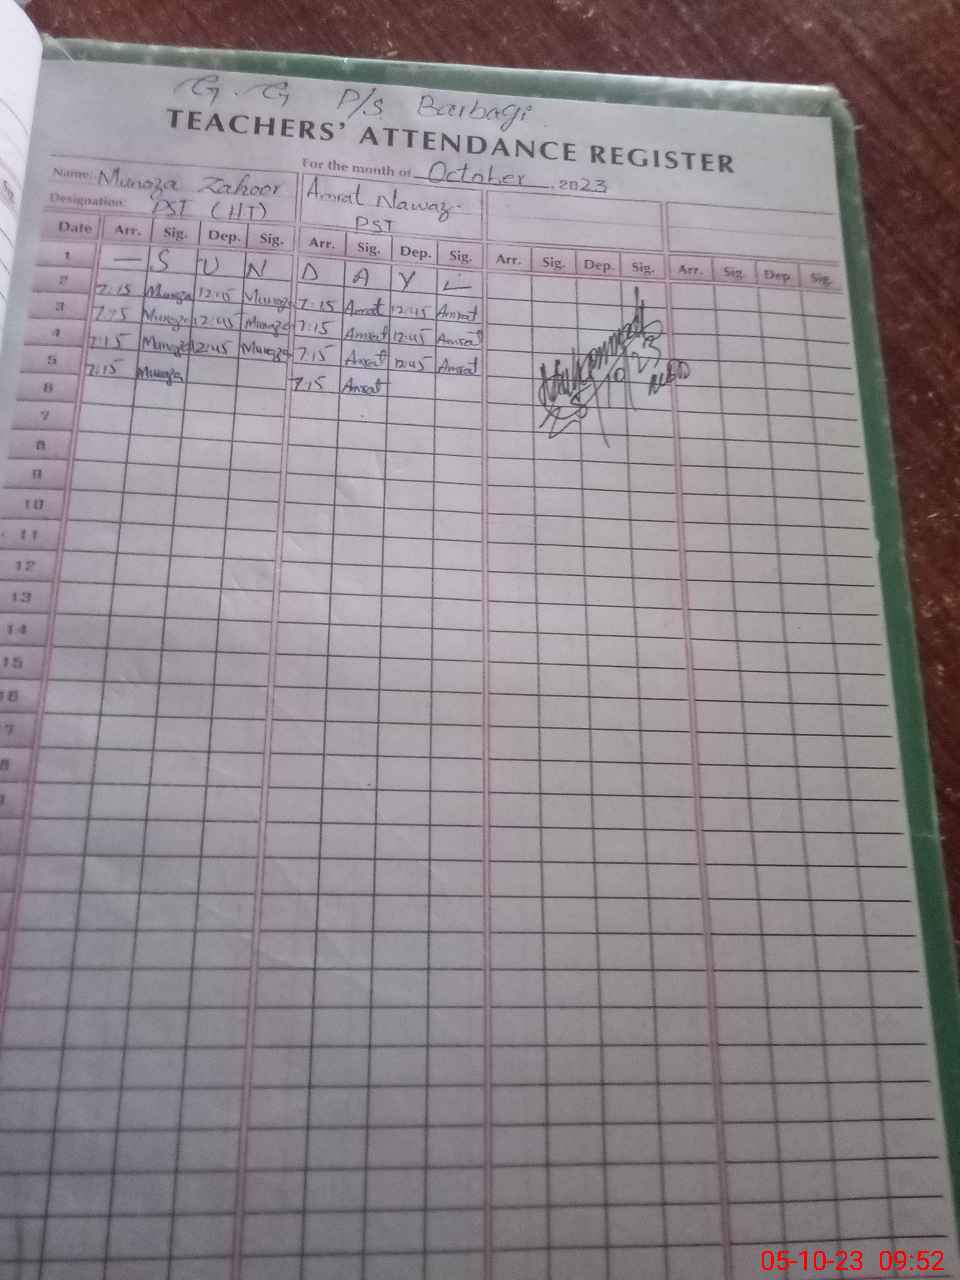 G.G P/S Barbagi
TEACHERS' ATTENDANCE REGISTER
For the month of October, 2023
Name: Munaza Zahoor Amrat Nawaz
Designation: PST (HT) PST
Date Arr. Sig. Dep. Sig. Arr. Sig. Dep. Sig. Arr. Sig. Dep. Sig. Arr. Sig. Dep. Sig.
1 — S U N D A Y —
2 7:15 Munaza 12:45 Munaza 7:15 Amrat 12:45 Amrat
3 7:15 Munaza 12:45 Munaza 7:15 Amrat 12:45 Amrat
4 7:15 Munaza 12:45 Munaza 7:15 Amrat 12:45 Amrat
5 7:15 Munaza 7:15 Amrat
6
7
8
9
10
11
12
13
14
15
16
7
8
05-10-23 09:52